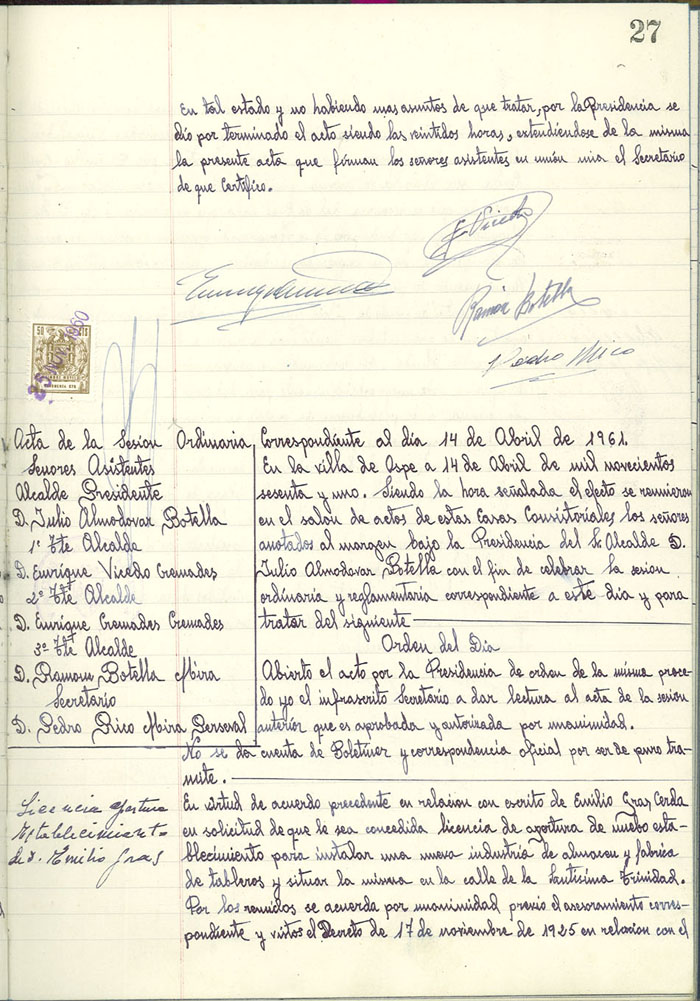 27
En tal estado y no habiendo mas asuntos de que tratar, por la Presidencia se
dio por terminado el acto siendo las veintidos horas, extendiendose de la misma
la presente acta que firman los señores asistentes en unión mia el Secretario
de que Certifico.
E Vicedo
Ramón Botella
Pedro Rico
50 CTS
25 NOV. 1960
Acta de la Sesion Ordinaria Correspondiente al día 14 de Abril de 1961.
Señores Asistentes
Alcalde Presidente
D. Julio Almodovar Botella
1º Tte Alcalde
D. Enrique Vicedo Cremades
2º Tte Alcalde
D. Enrique Cremades Cremades
3º Tte Alcalde
D. Ramon Botella Mira
Secretario
D. Pedro Rico Moira Perseval
En la villa de Aspe a 14 de Abril de mil novecientos
sesenta y uno. Siendo la hora señalada el efecto se reunieron
en el salon de actos de estas Casas Consistoriales los señores
anotados al margen bajo la Presidencia del Sr Alcalde D.
Julio Almodovar Botella con el fin de celebrar la sesion
ordinaria y reglamentaria correspondiente a este dia y para
tratar del siguiente
Orden del Dia
Abierto el acto por la Presidencia de orden de la misma proce-
do yo el infrascrito Secretario a dar lectura al acta de la sesion
anterior que es aprobada y autorizada por unanimidad.
No se da cuenta de Boletines y correspondencia oficial por ser de puro tra-
mite.
Licencia apertura
Establecimiento
de D. Emilio Gras
En virtud de acuerdo precedente en relacion con escrito de Emilio Gras Cerda
en solicitud de que le sea concedida licencia de apertura de nuebo esta-
blecimiento para instalar una nueva industria de almacen y fabrica
de tableros y situar la misma en la calle de la Santísima Trinidad.
Por los reunidos se acuerda por unanimidad previo el asesoramiento corres-
pondiente y vistos el Decreto de 17 de noviembre de 1925 en relacion con el